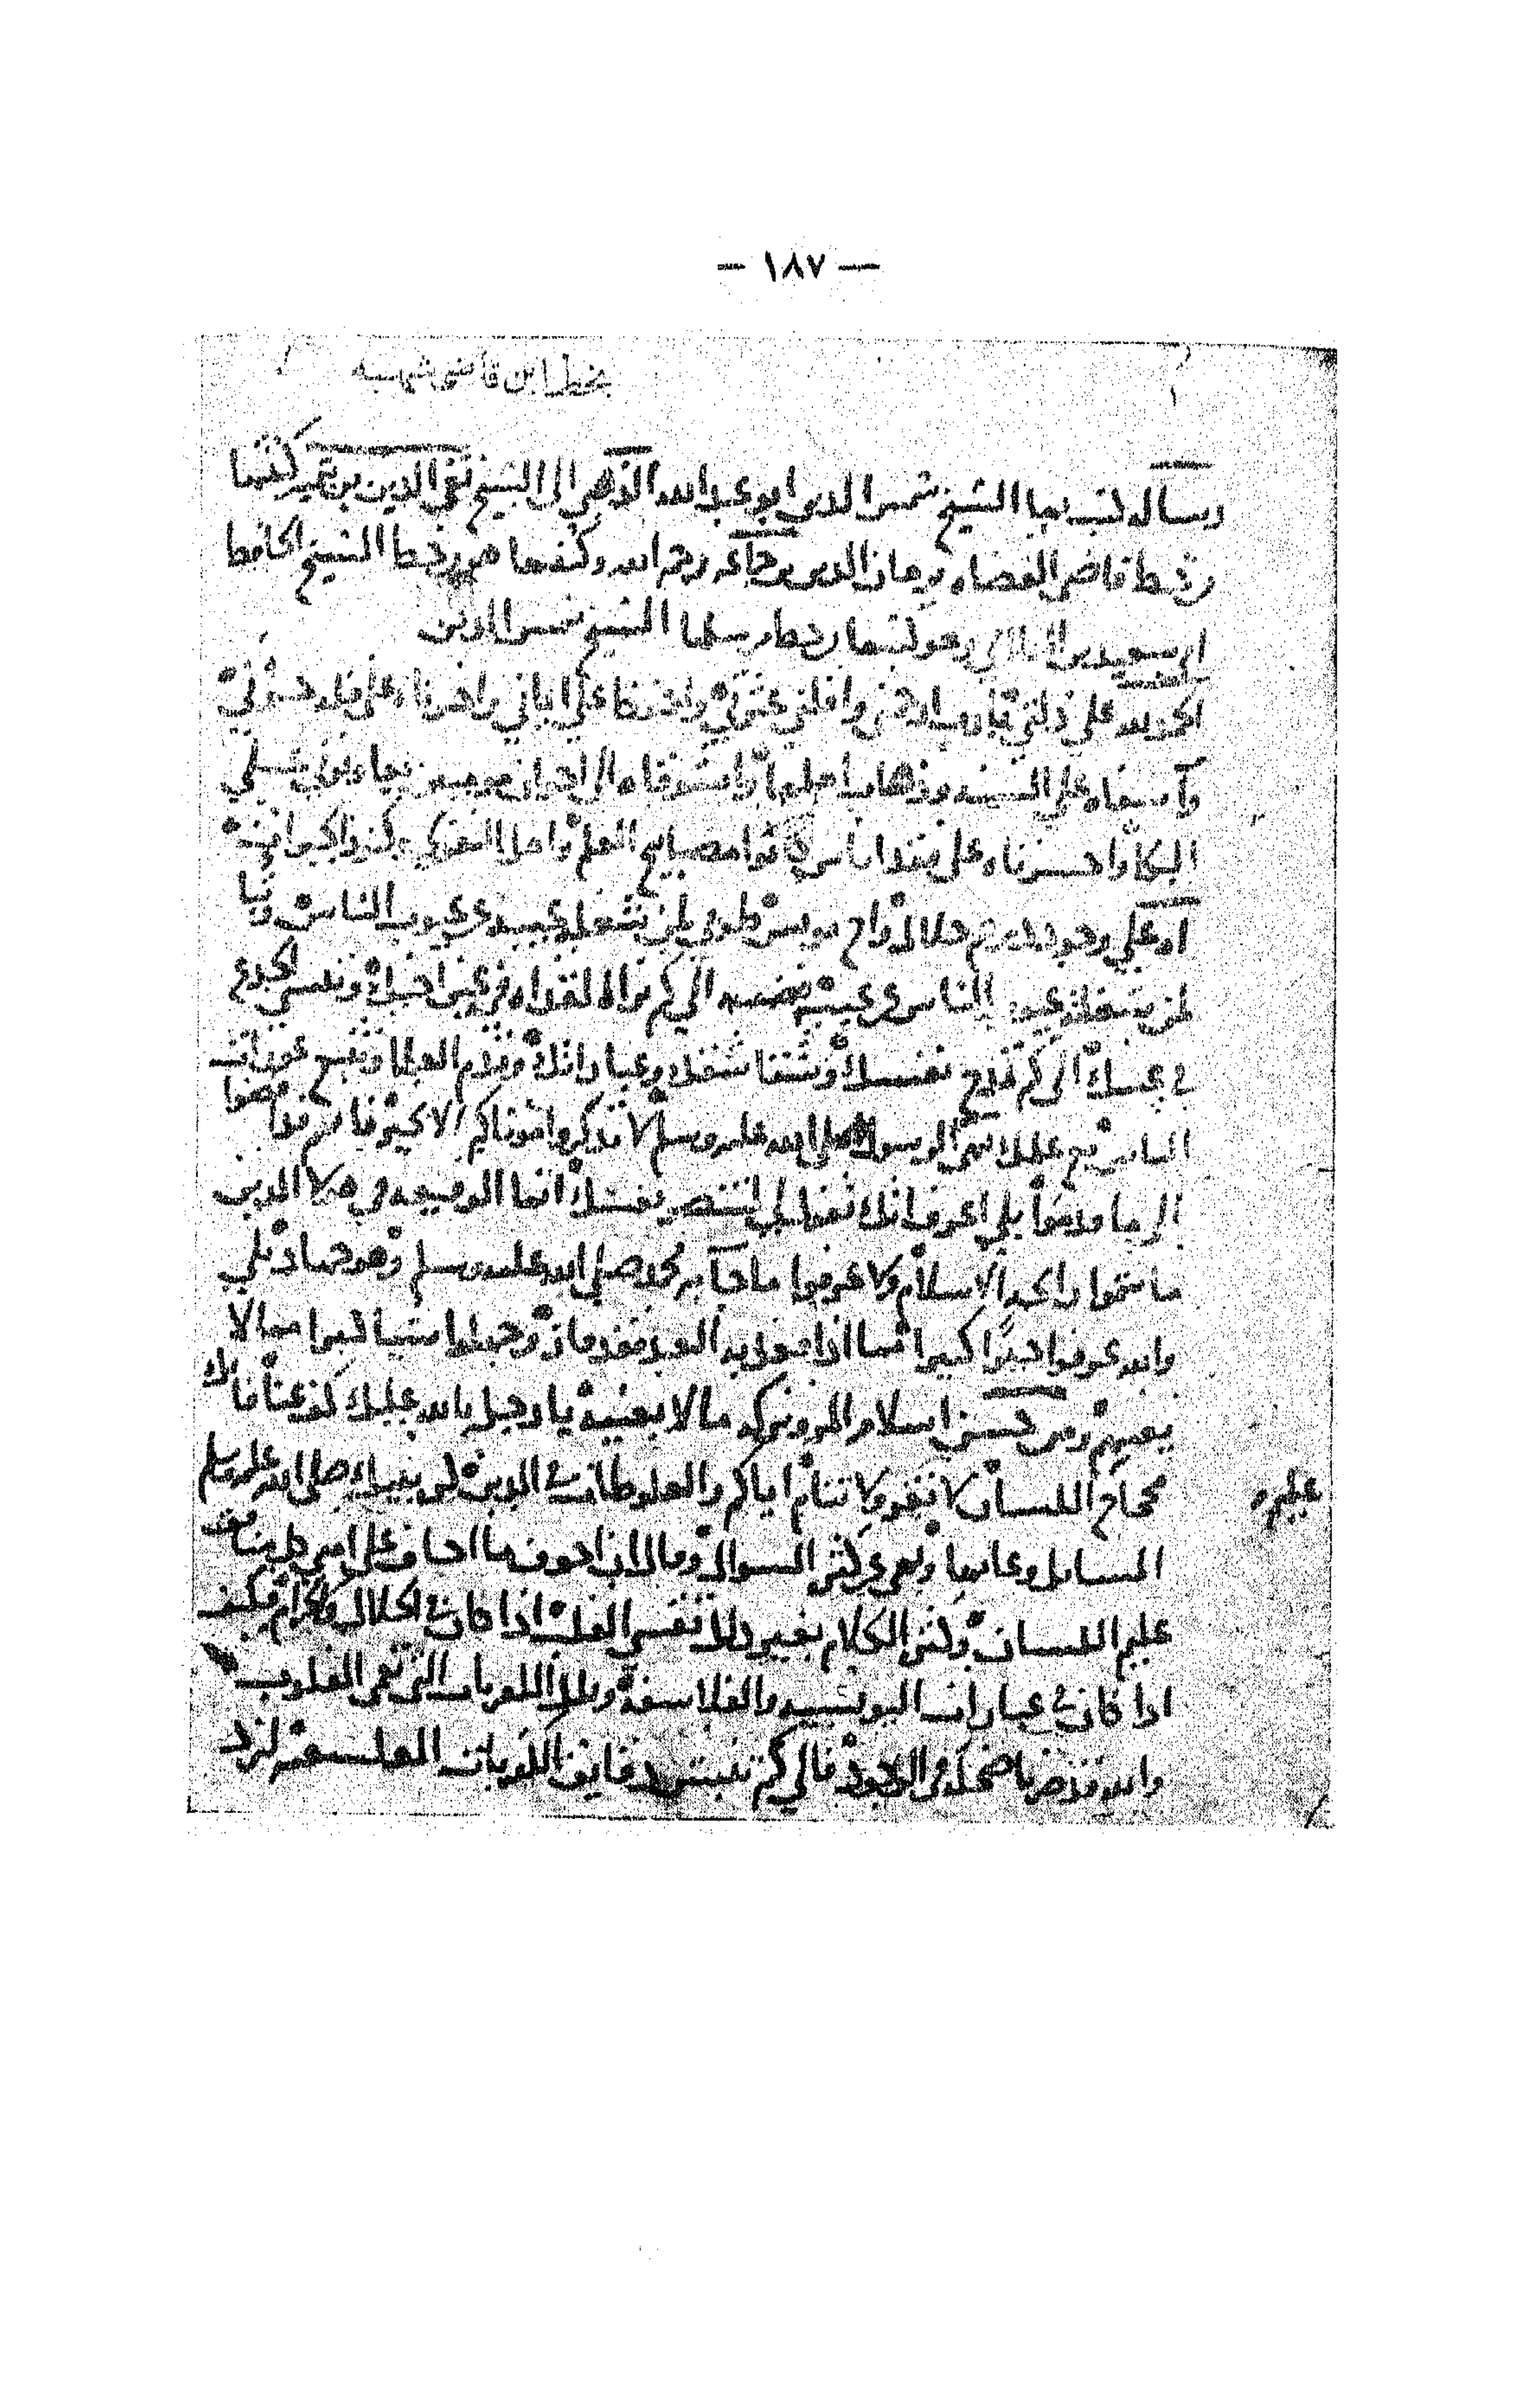 — ١٨٧ —
بخط ابن قاضى شهبه
رسالة كتب بها الشيخ شمس الدين ابو عبد الله الذهبي الى الشيخ تقي الدين بن تيمية كتبتها
من خط قاضي القضاه برهان الدين بن جماعه رحمه الله وكتبها هو من خط الشيخ الحافظ
ابي سعيد بن العلائي وهو كتبها من خط مرسلها الشيخ شمس الدين
الحمد لله على ذلتي يا رب ارحمني واقلني عثرتي واحفظ علي ايماني واحزناه على قلة حزني
وآسفاه على السنه وذهاب اهلها واشوقاه الى اخوان مومنين يعاونوني على
البكا واحزناه على فقد اناس كانوا مصابيح العلم واهل التقوى وكنوز الخيرات
آه على وجود درهم حلال واخ مونس طوبى لمن شغله عيبه عن عيوب الناس وتبا
لمن شغله عيوب الناس عن عيبه الى كم ترى القذاه في عين اخيك وتنسى الجذع
في عينك الى كم تمدح نفسك وشقاشقك وعباراتك وتذم العلما وتتبع عورات
الناس مع علمك بنهي الرسول صلى الله عليه وسلم لا تذكروا موتاكم الا بخير فانهم قد افضوا
الى ما قدموا بلى اعرف انك تقول لي لتنصر نفسك انما الوقيعه في هولا الذين
ما شموا رايحة الاسلام ولا عرفوا ما جآ به محمد صلى الله عليه وسلم وهو جهاد بلى
والله عرفوا خيرا كثيرا مما اذا عمل به العبد فقد فاز وجهلوا شيا كثيرا مما لا
يعنيهم ومن حسن اسلام المرو تركه ما لا يعنيه يا رجل بالله عليك كف عنا فانك
محجاج اللسان لا تقر ولا تنام اياكم والغلوطات في الدين كره نبيك صلى الله عليه وسلم
عليم
المسايل وعابها ونهى عن كثرة السوال وقال ان اخوف ما اخاف على امتي كل منافق
عليم اللسان وكثرة الكلام بغير دليل تقسي القلب اذا كان في الحلال والحرام فكيف
اذا كان في عبارات اليونسيه والفلاسفة وتلك الكفريات التي تعمي القلوب
والله قد صرنا ضحكه في الوجود فالى كم تنبش دقايق الكفريات الفلسفية لنرد